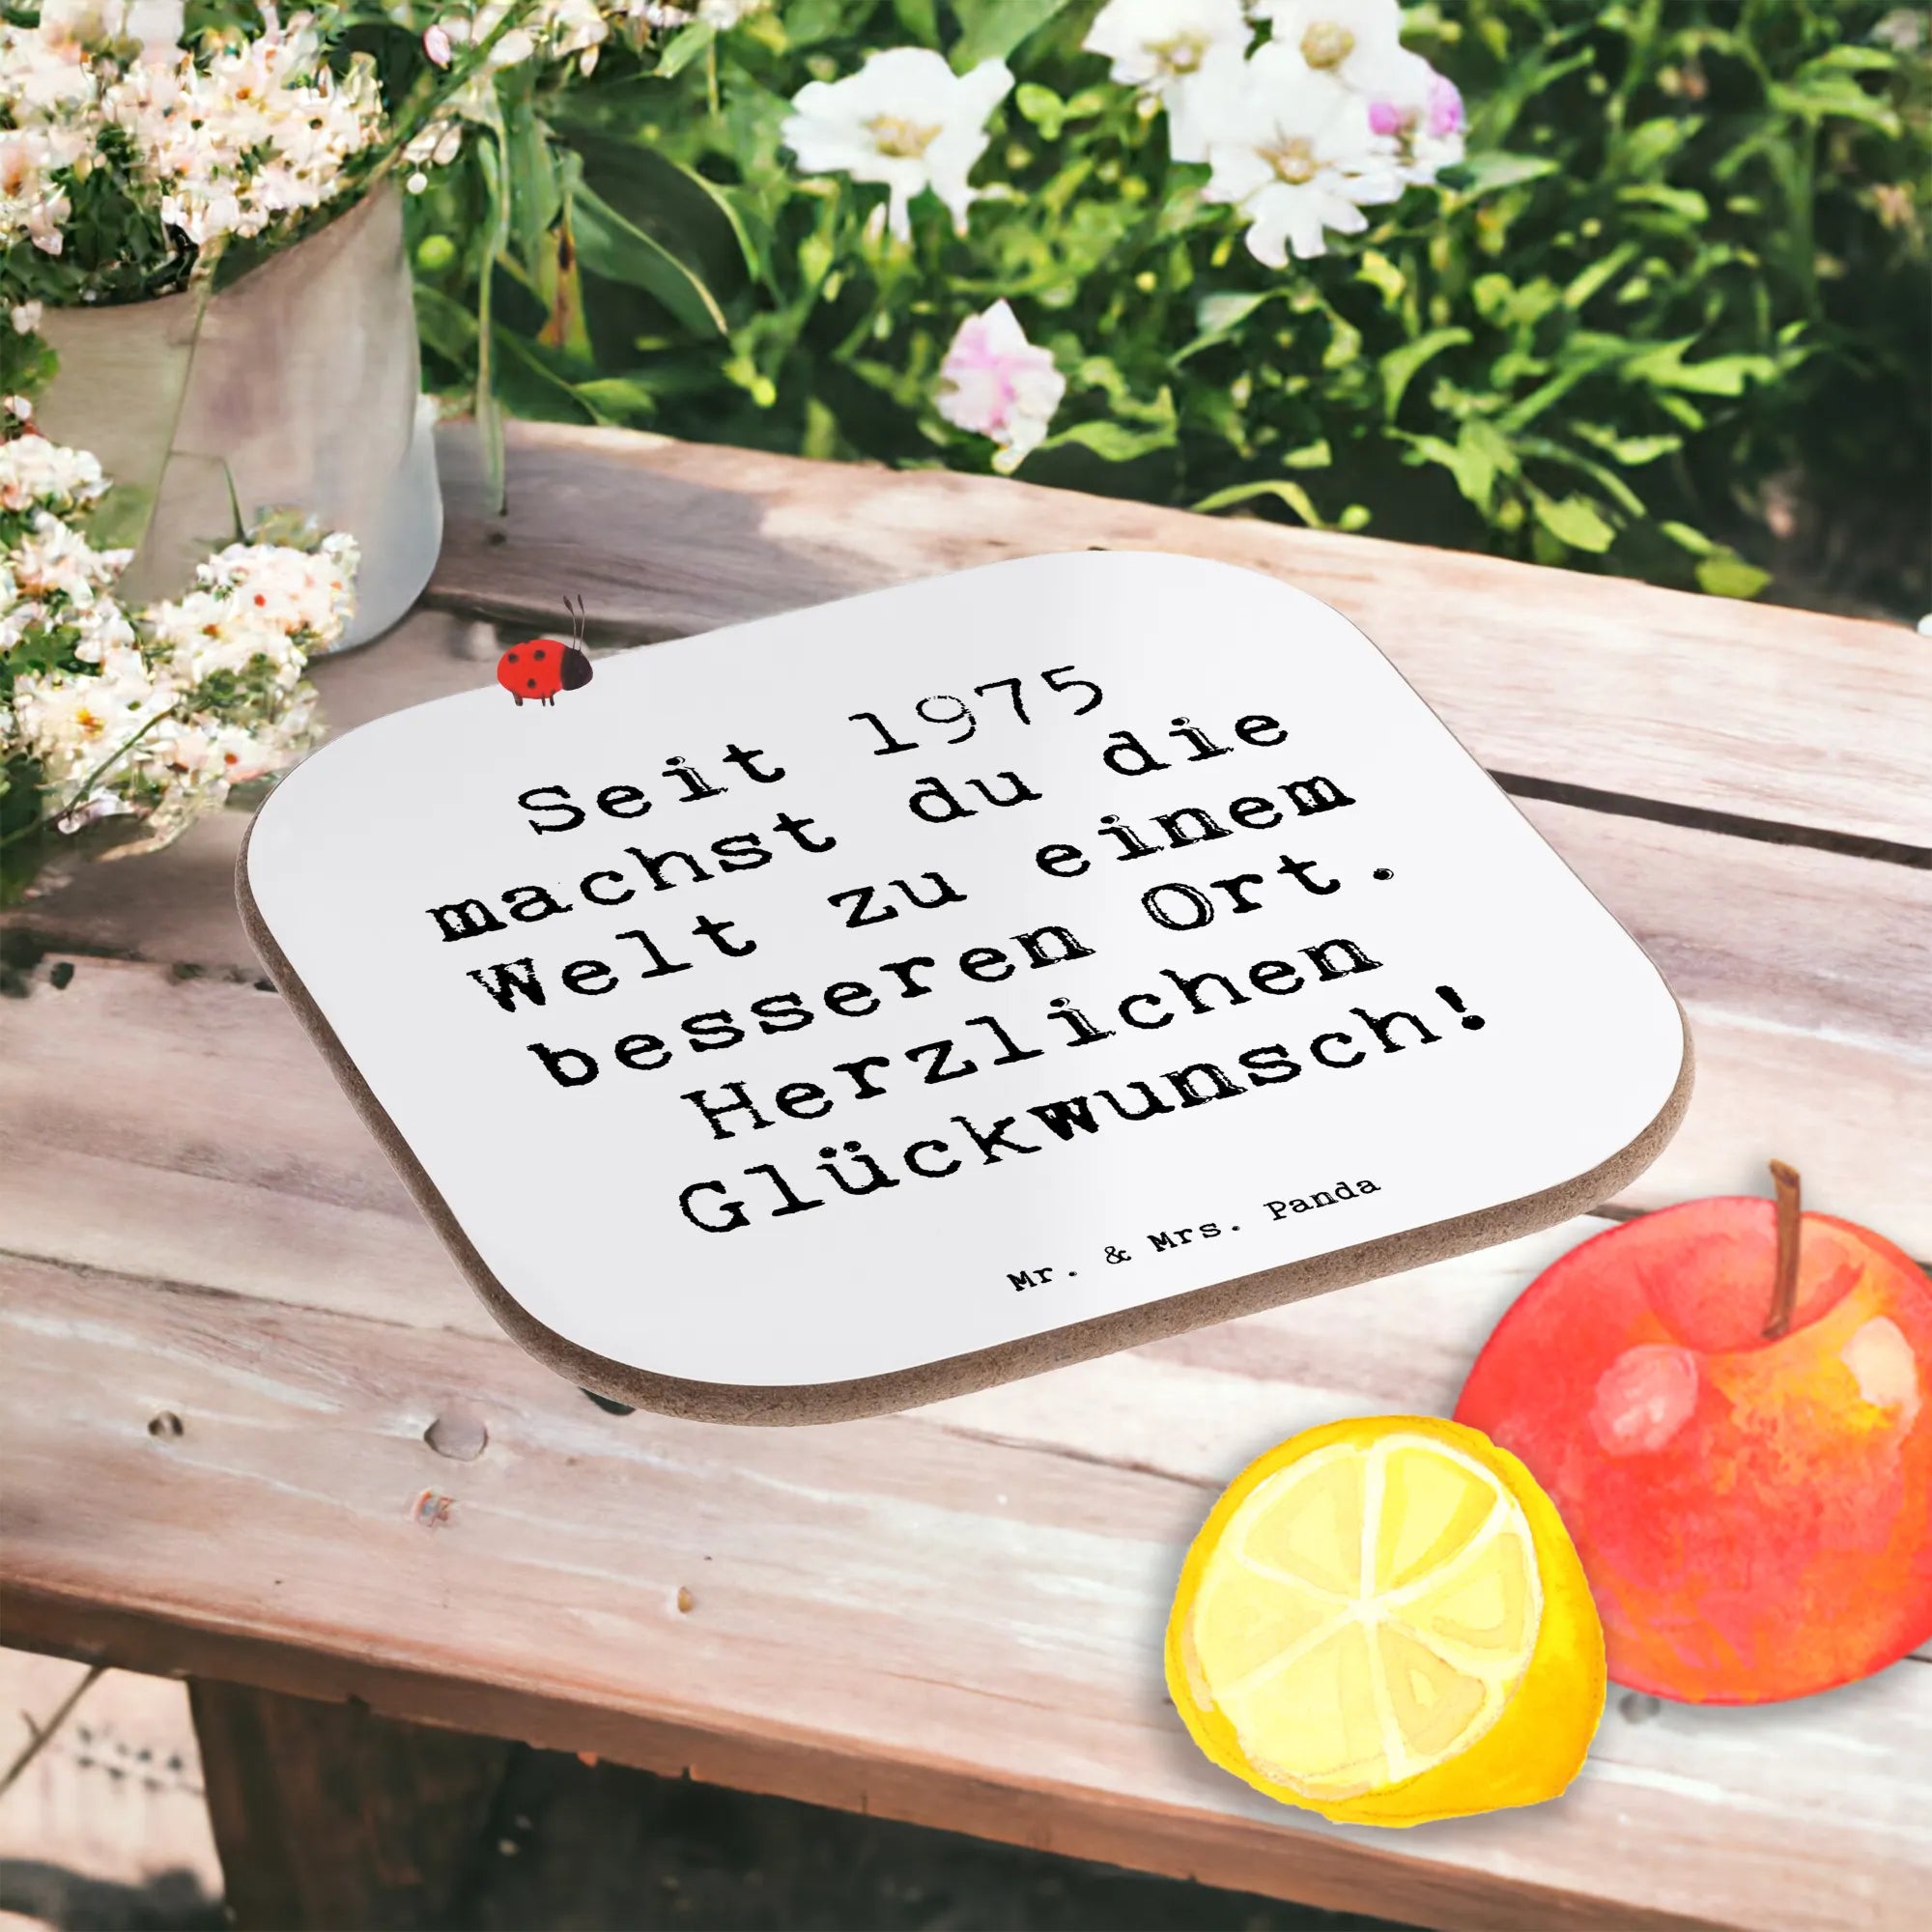 Seit 1975
machst du die
Welt zu einem
besseren Ort.
Herzlichen
Glückwunsch!
Mr. & Mrs. Panda